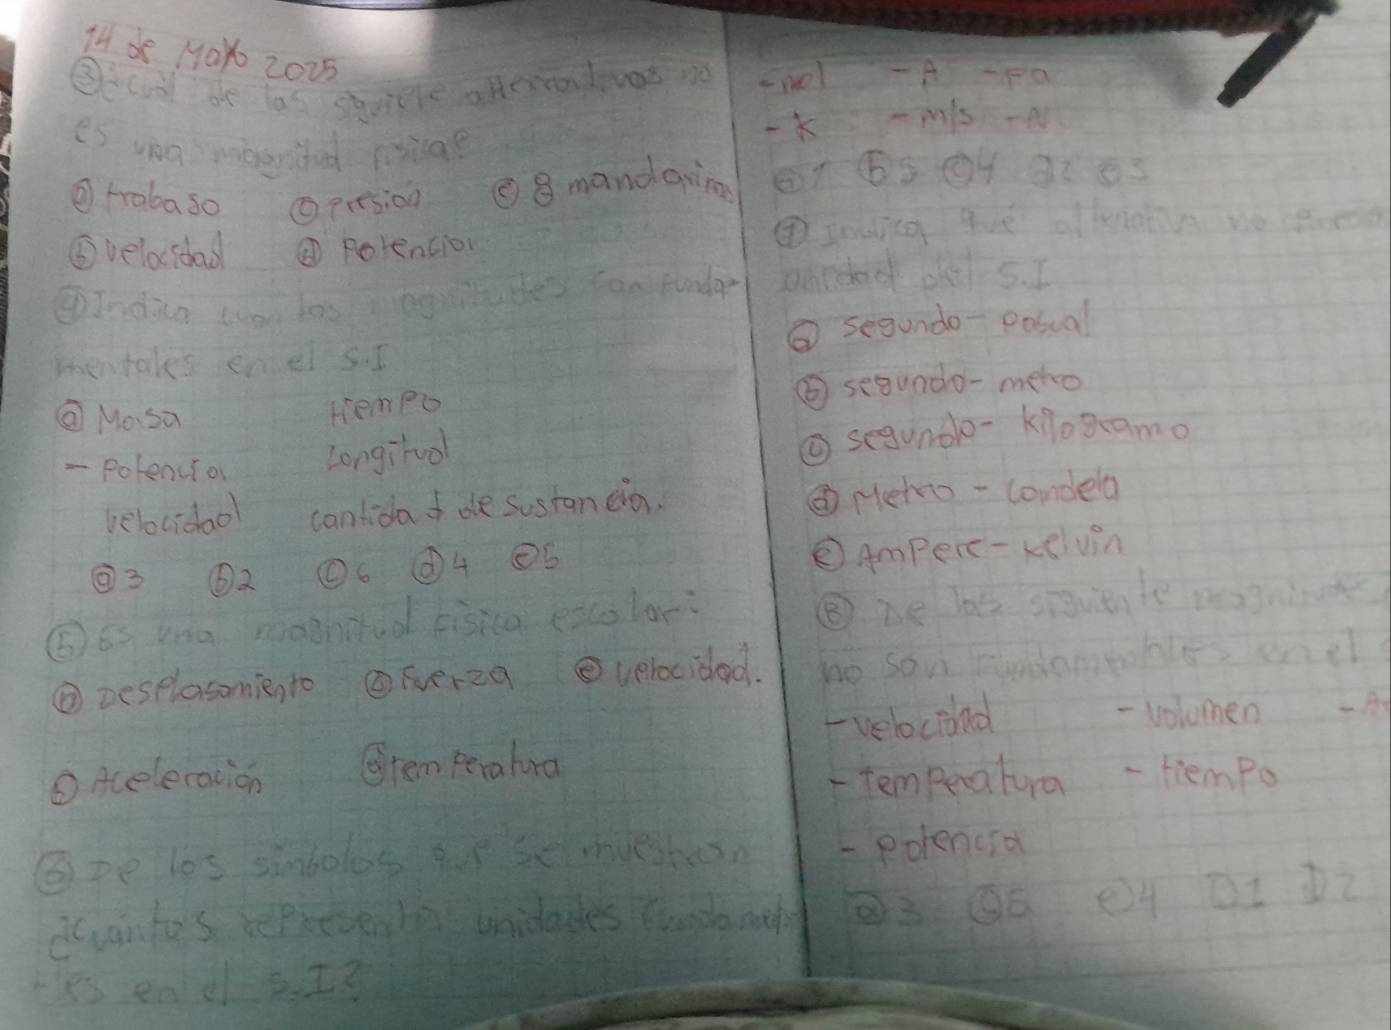 14 de Mayo 2025
③ ¿cual de las siguiete alternativas no
es una magnitud fisica?
ⓐ trabaso ⓒ presion ⓔ 8 mandarinas
ⓑ velocidad ⓓ Potencia
④ Indica cua las magnitudes son funda-
mentales en el S.I
ⓐ Masa tiempo
- Potencia Longitud
velocidad cantidad de sustancia.
ⓐ 3 ⓑ 2 ⓒ 6 ⓓ 4 ⓔ 5
⑤ Es una magnitud fisica escolar:
ⓐ Desplasamiento ⓓ Fuerza ⓔ velocidad.
ⓑ Aceleración temperatura
⑥ De los simbolos que se muestran
¿cuantos representan unidades fundament
es en el S.I?
- mol - A - Pa
- K - m/s - N
ⓑ 5 ⓒ 4
⑦ Indica qué alternativa no
unidad del S.I
ⓐ segundo - pascual
ⓑ segundo - metro
ⓒ segundo - kilogramo
ⓓ Metro - candela
ⓔ Ampere - kelvin
⑧ De las siguiente
no son fundamentales en el
- velocidad - volumen
- temperatura - tiempo
- potencia
ⓐ 3 e) 4 D 1 D 2